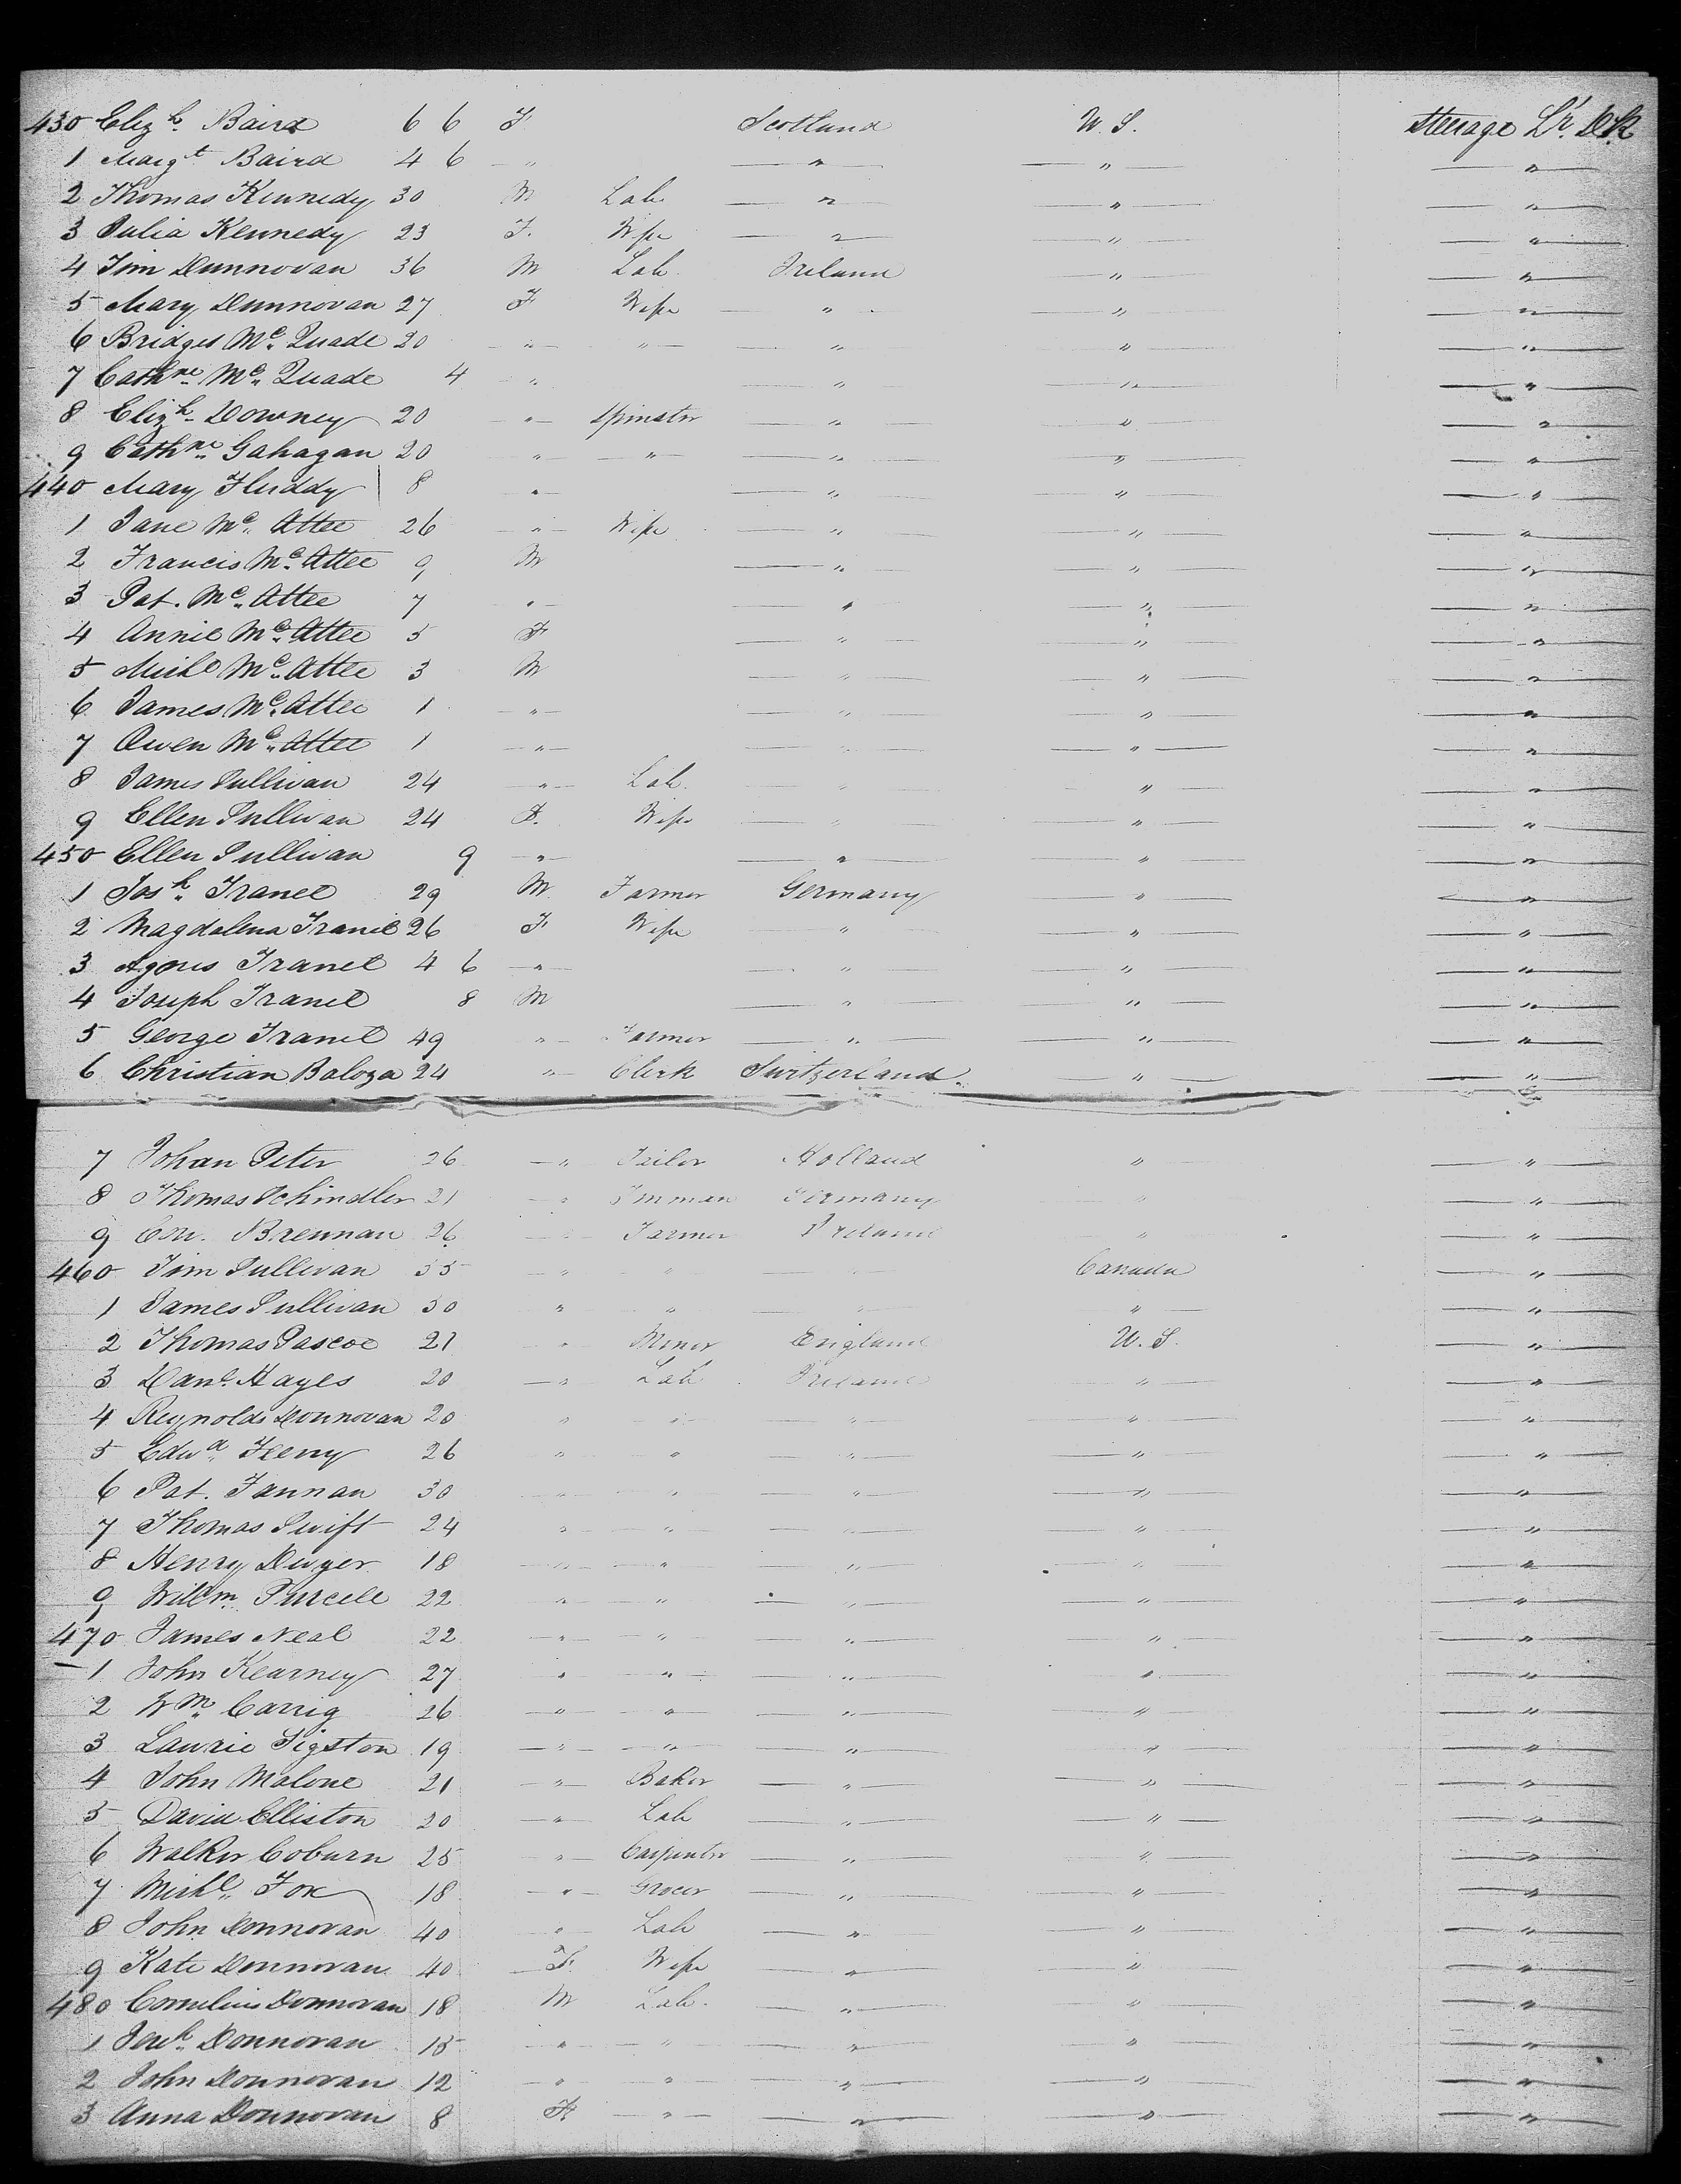 430 Eliz h. Baird 6 6 F Scotland U.S. Steerage Lr. DK
1 Margt Baird 4 6 " " " "
2 Thomas Kennedy 30 M Lab " " "
3 Julia Kennedy 23 F. Wife " " "
4 Jim Dunnovan 36 M Lab. Ireland " "
5 Mary Dunnovan 27 F Wife " " "
6 Bridget Mc. Quade 20 " " " " "
7 Cathne Mc. Quade 4 " " " "
8 Elizh. Downey 20 " Spinster " " "
9 Cathne. Gahagan 20 " " " " "
440 Mary Fluddy 8 " " " "
1 Jane Mc. Attee 26 " Wife " " "
2 Francis Mc. Attee 9 M " " "
3 Pat. Mc. Attee 7 " " " "
4 Annie Mc. Attee 5 F " " "
5 Michl Mc. Attee 3 M " " "
6 James Mc. Attee 1 " " " "
7 Owen Mc. Attee 1 " " " "
8 James Sullivan 24 " Lab. " " "
9 Ellen Sullivan 24 F. Wife " " "
450 Ellen Sullivan 9 " " " "
1 Josh. Tranel 29 M. Farmer Germany " "
2 Magdalena Tranel 26 F Wife " " "
3 Agnes Tranel 4 6 " " " "
4 Joseph Tranel 8 M " " "
5 George Tranel 49 " Farmer " " "
6 Christian Baloza 24 " Clerk Switzerland " "
7 Johan Peter 26 " Tailor Holland " "
8 Thomas Schindler 21 " Germany " "
9 Brennan 26 " Farmer Ireland " "
460 Jim Sullivan 35 " " " Canada "
1 James Sullivan 30 " " " " "
2 Thomas Pascoe 21 " Miner England U.S. "
3 Danl. Hayes 20 " Lab Ireland " "
4 Reynolds Donnovan 20 " " " " "
5 Edwd. Feeny 26 " " " " "
6 Pat. Fannan 30 " " " " "
7 Thomas Swift 24 " " " " "
8 Henry Dwyer 18 " " " " "
9 Willm. Purcell 22 " " " " "
470 James Neal 22 " " " " "
1 John Kearney 27 " " " " "
2 Wm. Carrig 26 " " " " "
3 Laurie Sigston 19 " " " " "
4 John Malone 21 " Baker " " "
5 David Elliston 20 " Lab " " "
6 Walker Coburn 25 " Carpenter " " "
7 Michl. Fox 18 " Grocer " " "
8 John Donnovan 40 " Lab " " "
9 Kate Donnovan 40 F. Wife " " "
480 Cornelius Donnovan 18 M Lab. " " "
1 Donnovan 15 " " " " "
2 John Donnovan 12 " " " " "
3 Anna Donnovan 8 F " " " "